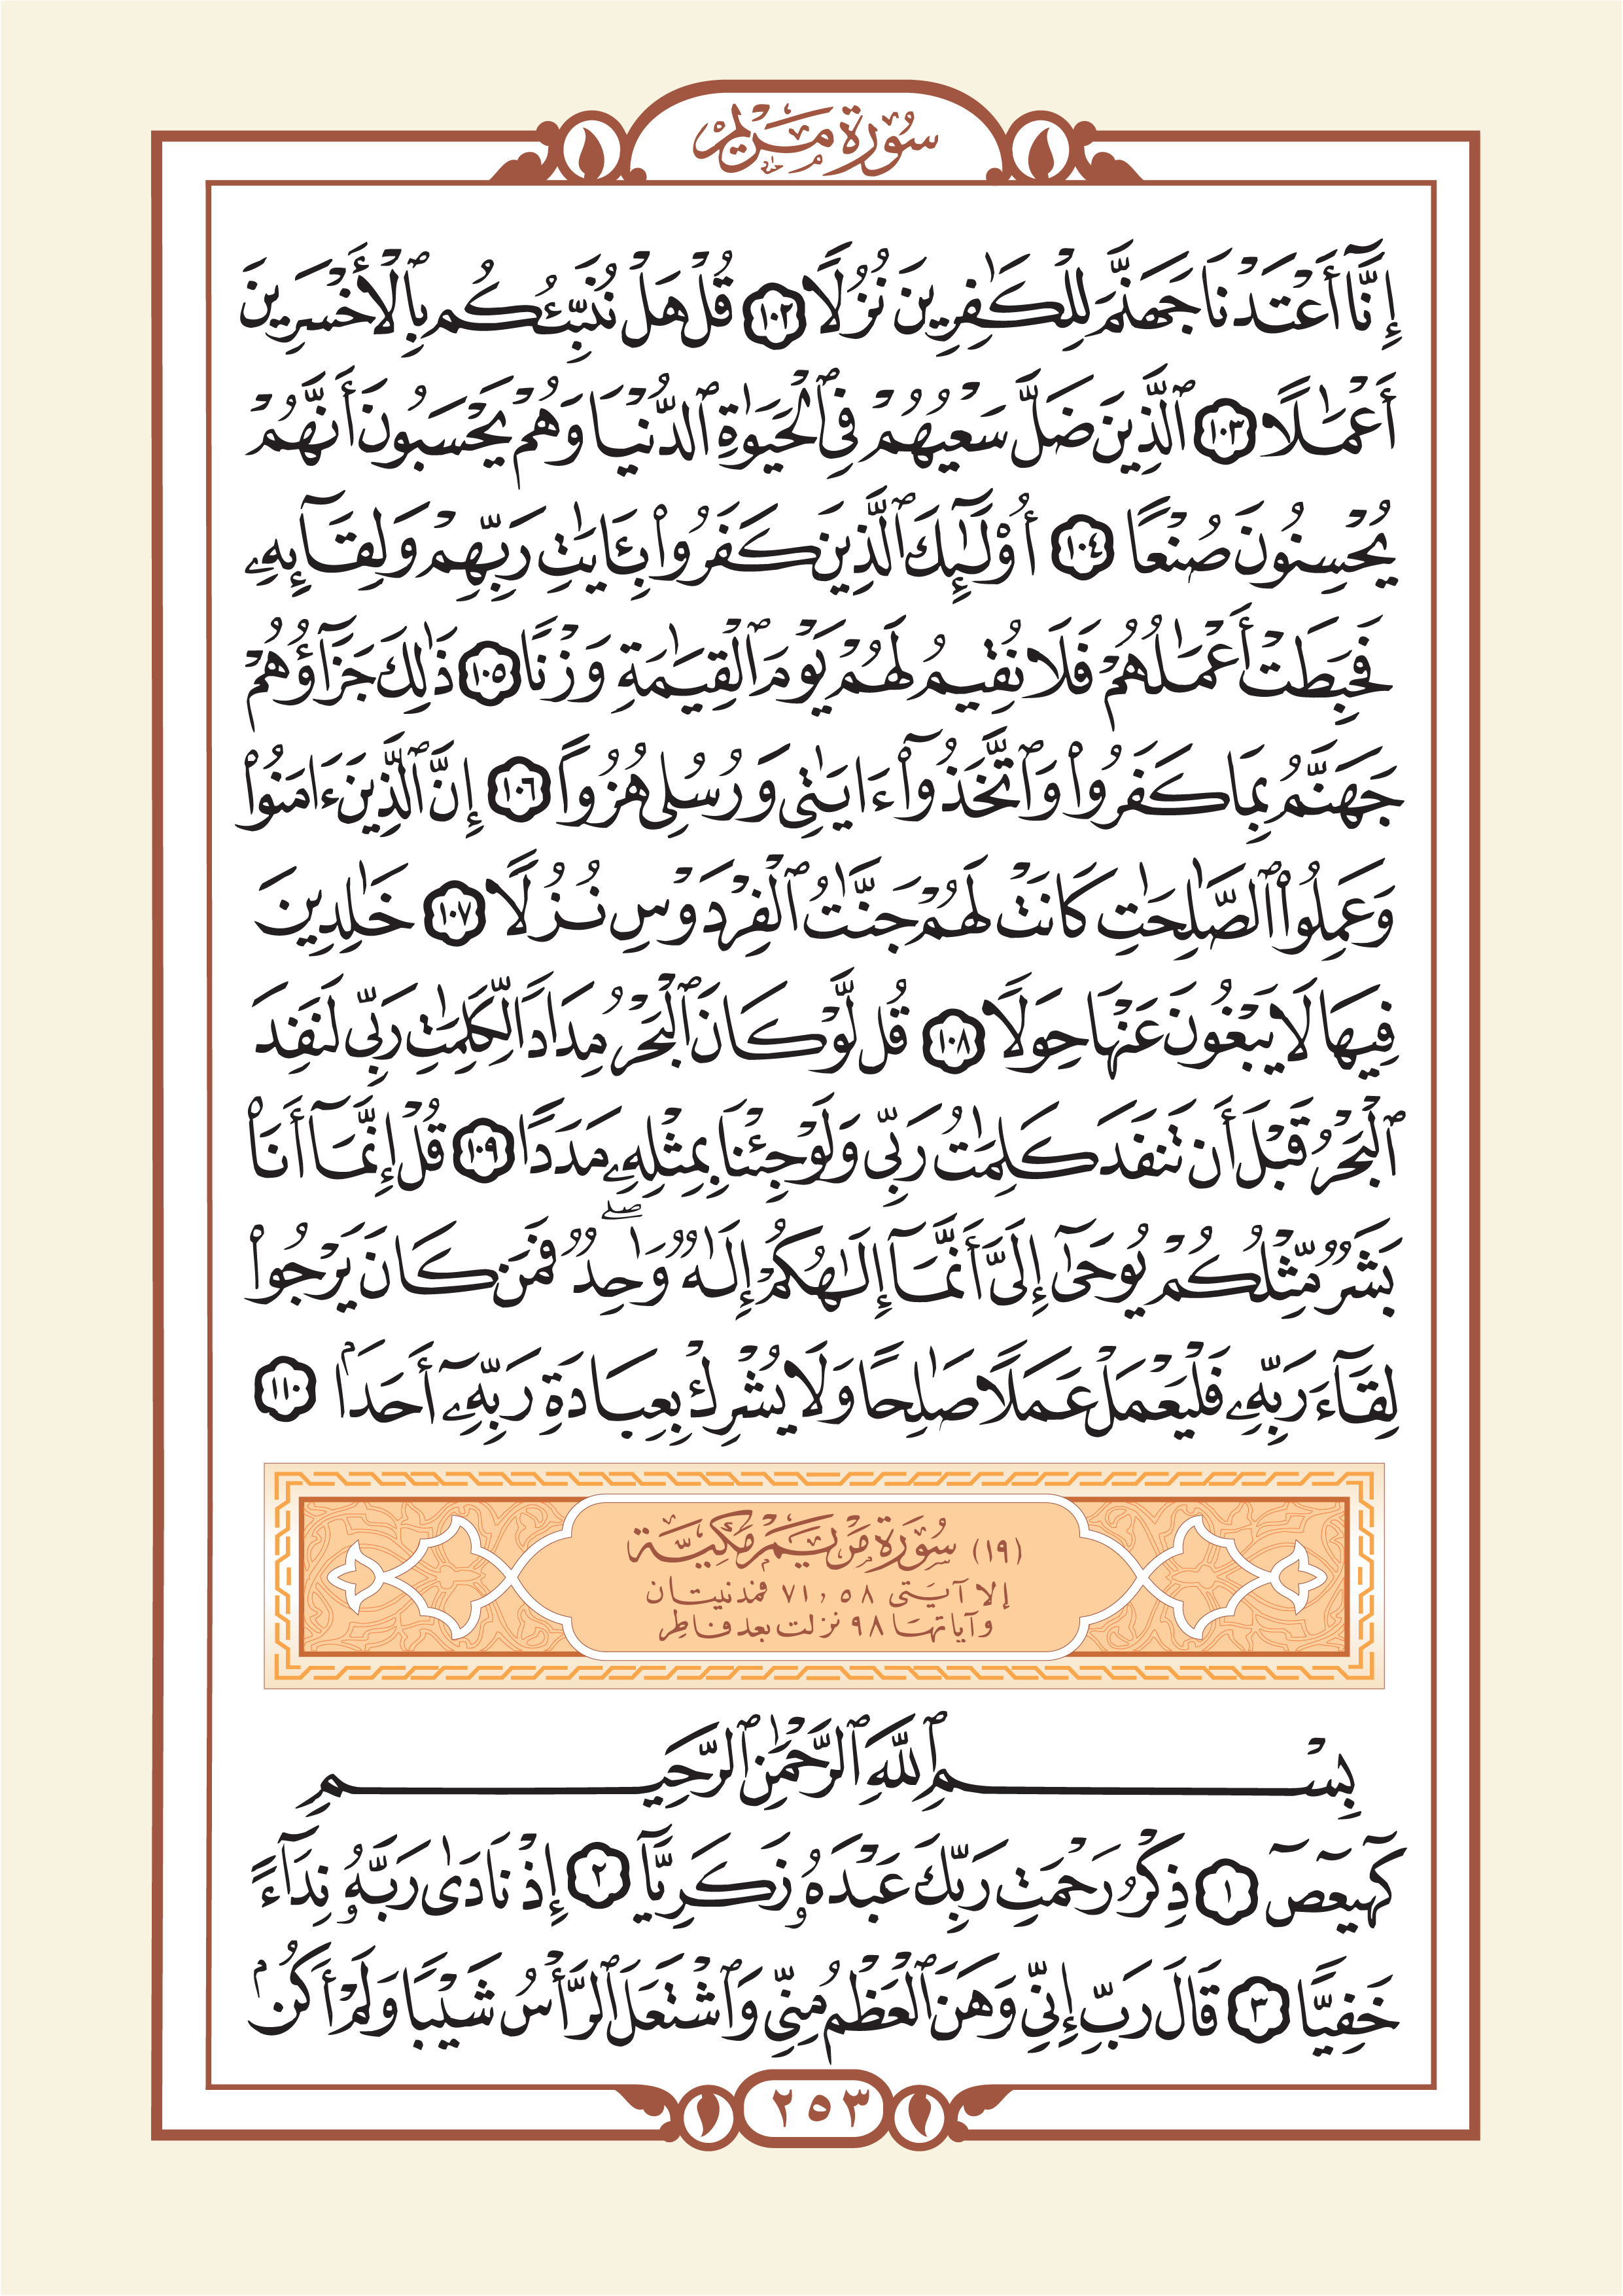 سُورَة مَرْيَم
إِنَّآ أَعْتَدْنَا جَهَنَّمَ لِلْكَٰفِرِينَ نُزُلًا ١٠٢ قُلْ هَلْ نُنَبِّئُكُم بِٱلْأَخْسَرِينَ
أَعْمَٰلًا ١٠٣ ٱلَّذِينَ ضَلَّ سَعْيُهُمْ فِى ٱلْحَيَوٰةِ ٱلدُّنْيَا وَهُمْ يَحْسَبُونَ أَنَّهُمْ
يُحْسِنُونَ صُنْعًا ١٠٤ أُوْلَٰٓئِكَ ٱلَّذِينَ كَفَرُوا۟ بِـَٔايَٰتِ رَبِّهِمْ وَلِقَآئِهِۦ
فَحَبِطَتْ أَعْمَٰلُهُمْ فَلَا نُقِيمُ لَهُمْ يَوْمَ ٱلْقِيَٰمَةِ وَزْنًا ١٠٥ ذَٰلِكَ جَزَآؤُهُمْ
جَهَنَّمُ بِمَا كَفَرُوا۟ وَٱتَّخَذُوٓا۟ ءَايَٰتِى وَرُسُلِى هُزُوًا ١٠٦ إِنَّ ٱلَّذِينَ ءَامَنُوا۟
وَعَمِلُوا۟ ٱلصَّٰلِحَٰتِ كَانَتْ لَهُمْ جَنَّٰتُ ٱلْفِرْدَوْسِ نُزُلًا ١٠٧ خَٰلِدِينَ
فِيهَا لَا يَبْغُونَ عَنْهَا حِوَلًا ١٠٨ قُل لَّوْ كَانَ ٱلْبَحْرُ مِدَادًا لِّكَلِمَٰتِ رَبِّى لَنَفِدَ
ٱلْبَحْرُ قَبْلَ أَن تَنفَدَ كَلِمَٰتُ رَبِّى وَلَوْ جِئْنَا بِمِثْلِهِۦ مَدَدًا ١٠٩ قُلْ إِنَّمَآ أَنَا۠
بَشَرٌ مِّثْلُكُمْ يُوحَىٰٓ إِلَىَّ أَنَّمَآ إِلَٰهُكُمْ إِلَٰهٌ وَٰحِدٌ ۖ فَمَن كَانَ يَرْجُوا۟
لِقَآءَ رَبِّهِۦ فَلْيَعْمَلْ عَمَلًا صَٰلِحًا وَلَا يُشْرِكْ بِعِبَادَةِ رَبِّهِۦٓ أَحَدَۢا ١١٠
(١٩) سُورَة مَرْيَم مَكِّيَّة
إلا آيَتى ٥٨ , ٧١ فمدنيتان
وآياتها ٩٨ نزلت بعد فاطر
بِسْمِ ٱللَّهِ ٱلرَّحْمَٰنِ ٱلرَّحِيمِ
كٓهيعٓصٓ ١ ذِكْرُ رَحْمَتِ رَبِّكَ عَبْدَهُۥ زَكَرِيَّآ ٢ إِذْ نَادَىٰ رَبَّهُۥ نِدَآءً
خَفِيًّا ٣ قَالَ رَبِّ إِنِّى وَهَنَ ٱلْعَظْمُ مِنِّى وَٱشْتَعَلَ ٱلرَّأْسُ شَيْبًا وَلَمْ أَكُنۢ
٢٥٣